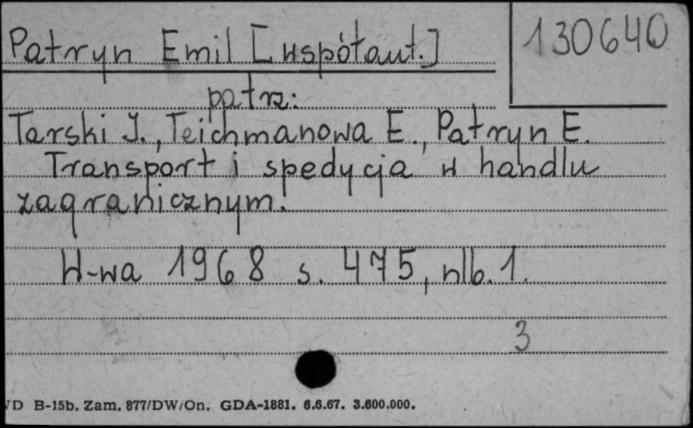 Patryn Emil [współaut.]
130640
patrz:
Tarski J., Teichmanowa E., Patryn E.
Transport i spedycja w handlu
zagranicznym.
W-wa 1968 s. 475, nlb. 1.
3
D B-15b. Zam. 877/DW/On. GDA-1881. 6.6.67. 3.600.000.